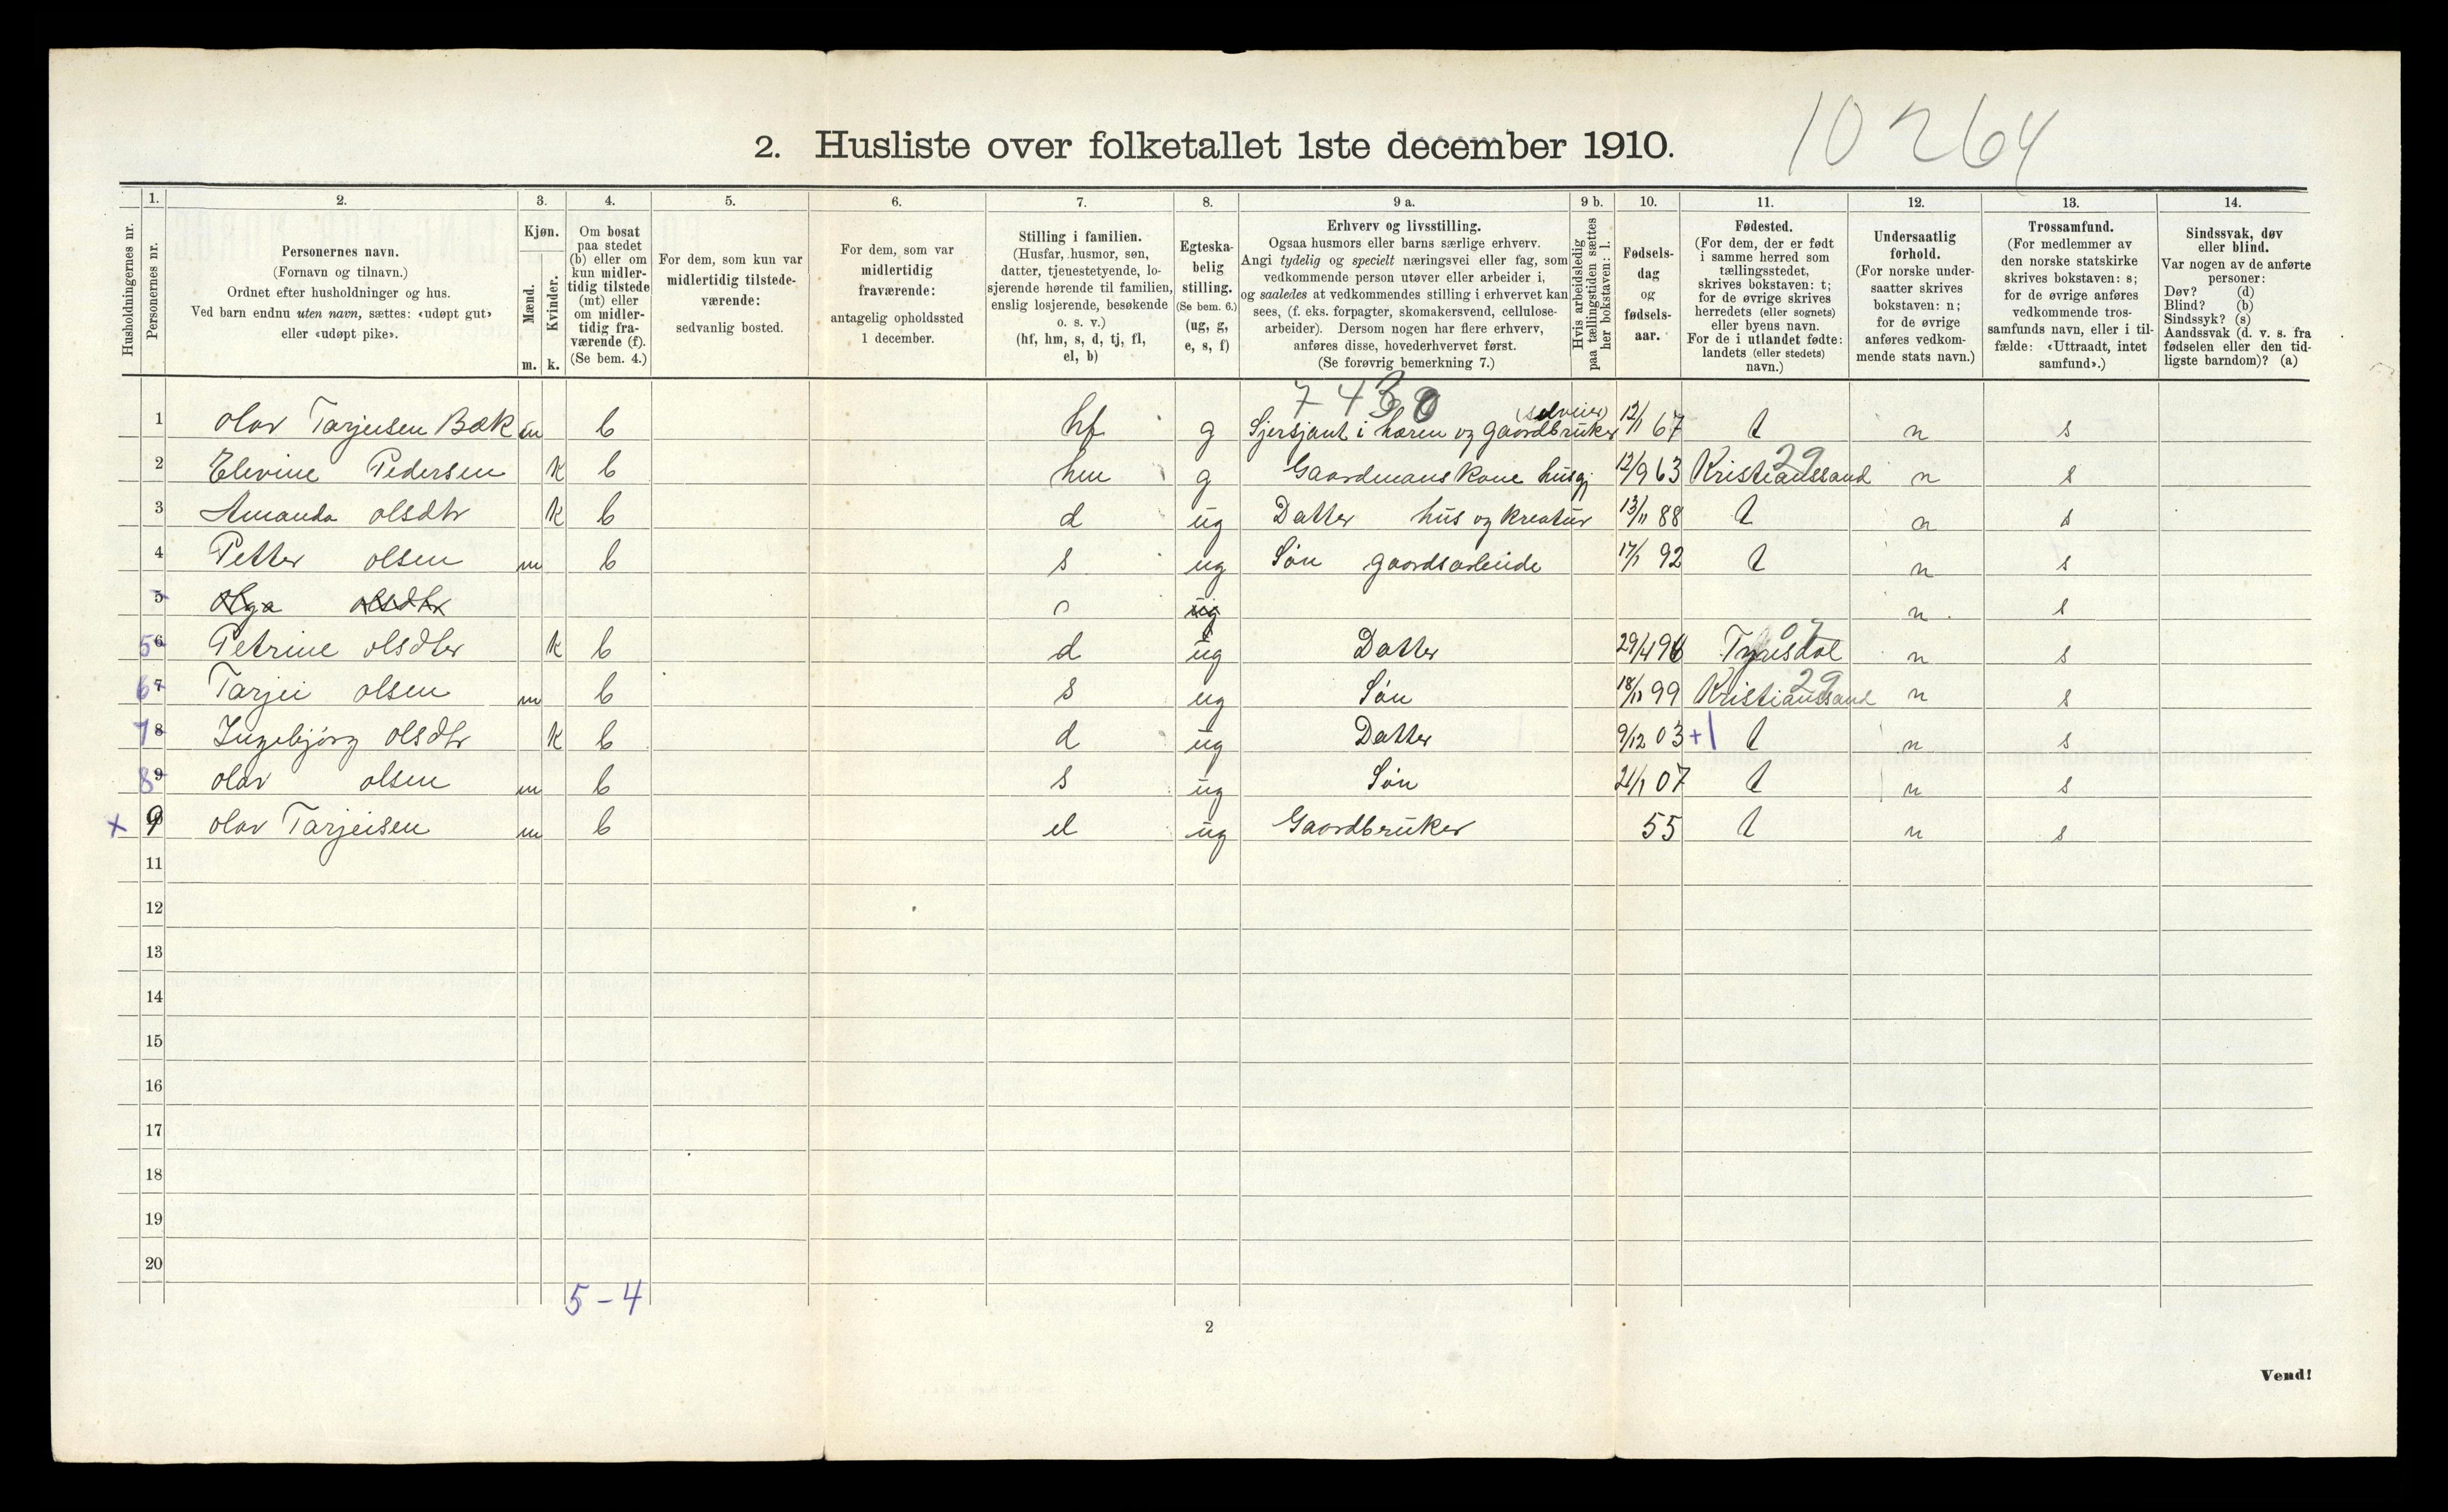 10264
2. Husliste over folketallet 1ste december 1910.
Husholdningernes nr.
1.
Personernes nr.
2.
Personernes navn.
(Fornavn og tilnavn.)
Ordnet efter husholdninger og hus.
Ved barn endnu uten navn, sættes: «udøpt gut»
eller «udøpt pike».
3.
Kjøn.
Mænd.
Kvinder.
m. k.
4.
Om bosat
paa stedet
(b) eller om
kun midler-
tidig tilstede
(mt) eller
om midler-
tidig fra-
værende (f).
(Se bem. 4.)
5.
For dem, som kun var
midlertidig tilstede-
værende:
sedvanlig bosted.
6.
For dem, som var
midlertidig
fraværende:
antagelig opholdssted
1 december.
7.
Stilling i familien.
(Husfar, husmor, søn,
datter, tjenestetyende, lo-
sjerende hørende til familien,
enslig losjerende, besøkende
o. s. v.)
(hf, hm, s, d, tj, fl,
el, b)
8.
Egteska-
belig
stilling.
(Se bem. 6.)
(ug, g,
e, s, f)
9 a.
Erhverv og livsstilling.
Ogsaa husmors eller barns særlige erhverv.
Angi tydelig og specielt næringsvei eller fag, som
vedkommende person utøver eller arbeider i,
og saaledes at vedkommendes stilling i erhvervet kan
sees, (f. eks. forpagter, skomakersvend, cellulose-
arbeider). Dersom nogen har flere erhverv,
anføres disse, hovederhvervet først.
(Se forøvrig bemerkning 7.)
9 b.
Hvis arbeidsledig
paa tællingstiden sættes
her bokstaven: l.
10.
Fødsels-
dag
og
fødsels-
aar.
11.
Fødested.
(For dem, der er født
i samme herred som
tællingsstedet,
skrives bokstaven: t;
for de øvrige skrives
herredets (eller sognets)
eller byens navn.
For de i utlandet fødte:
landets (eller stedets)
navn.)
12.
Undersaatlig
forhold.
(For norske under-
saatter skrives
bokstaven: n;
for de øvrige
anføres vedkom-
mende stats navn.)
13.
Trossamfund.
(For medlemmer av
den norske statskirke
skrives bokstaven: s;
for de øvrige anføres
vedkommende tros-
samfunds navn, eller i til-
fælde: «Uttraadt, intet
samfund».)
14.
Sindssvak, døv
eller blind.
Var nogen av de anførte
personer:
Døv? (d)
Blind? (b)
Sindssyk? (s)
Aandssvak (d. v. s. fra
fødselen eller den tid-
ligste barndom)? (a)
(selveier)
1 Olav Tarjeisen Bæk m b hf g Sjersjant i hæren og gaardbruker 12/1 67 t n s
29
2 Elevine Pedersen k b hm g Gaardmanskone husgj 12/9 63 Kristianssand n s
3 Amanda olsdtr k b d ug Datter hus og kreatur 13/11 88 t n s
4 Petter olsen m b s ug Søn gaardsarbeide 17/1 92 t n s
5 Olga olsdtr ug n s
5 6 Petrine olsdter k b d ug Datter 29/4 96 Tyrisdal n s
29
6 7 Tarjei olsen m b s ug Søn 18/11 99 Kristianssand n s
7 8 Ingebjørg olsdtr k b d ug Datter 9/12 03 +1 t n s
8 9 olav olsen m b s ug Søn 21/1 07 t n s
x 9 olav Tarjeisen m b el ug Gaardbruker 55 t n s
11
12
13
14
15
16
17
18
19
20
5-4
2
Vend!